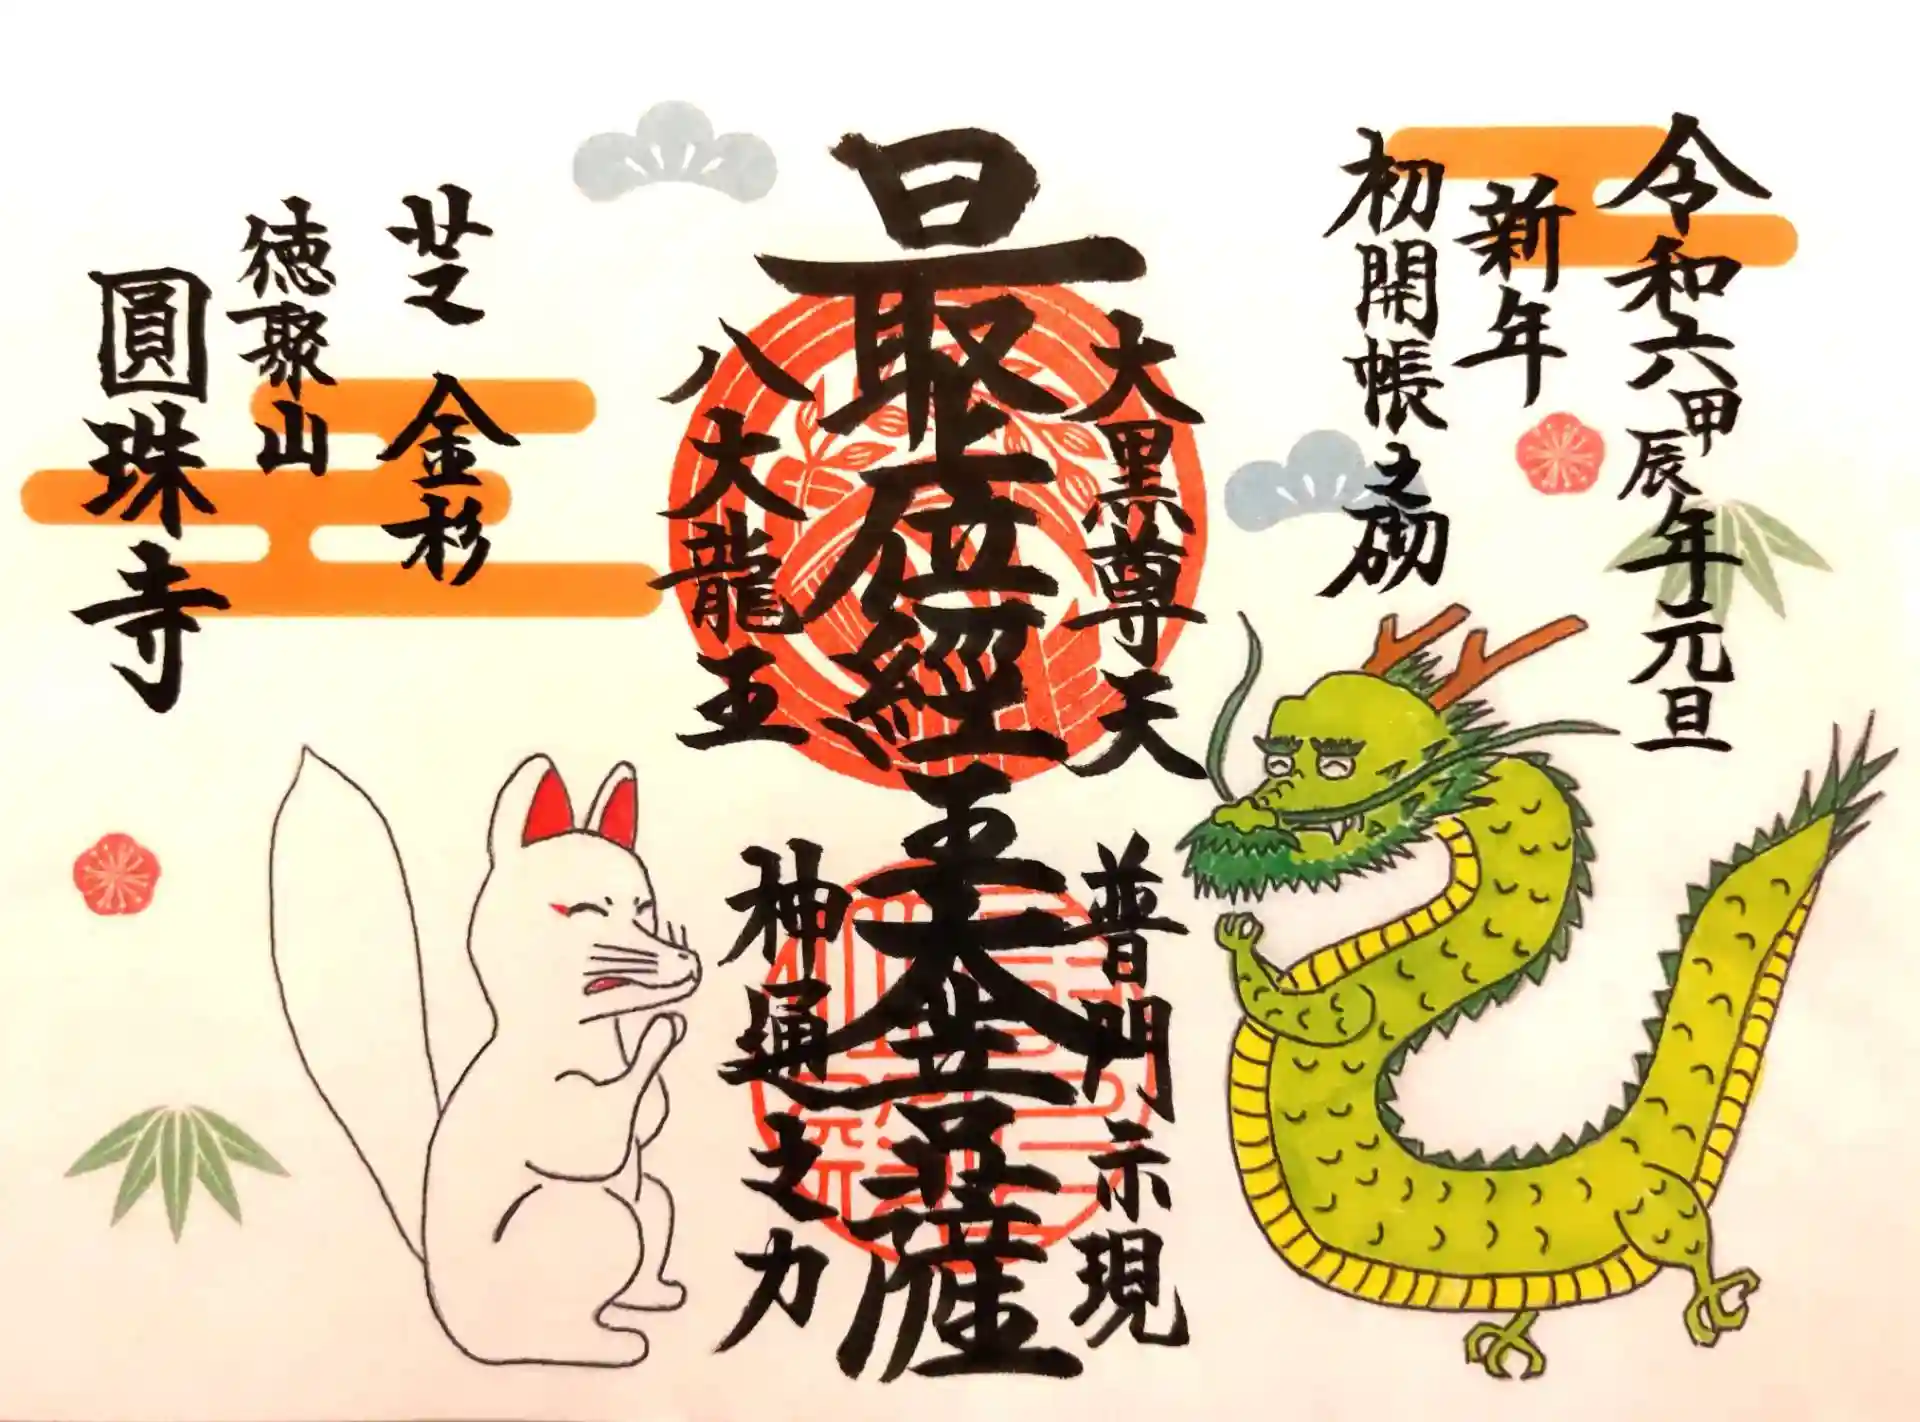 令和六甲辰年元旦
新年
初開帳之砌
大黒尊天
普門示現
最上位經王大菩薩
八大龍王
神通之力
芝 金杉
徳聚山
圓珠寺